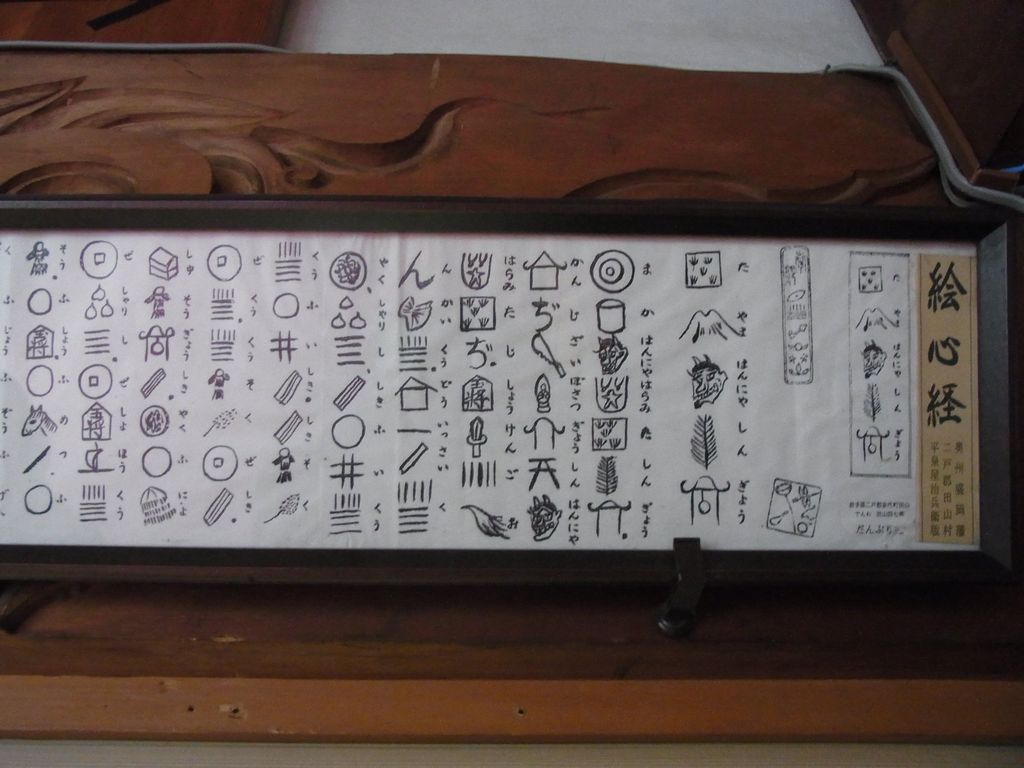 絵心経
奥州盛岡藩
二戸郡田山村
平泉屋治兵衛版
た やま はんにや しん ぎょう
だんぶり
た やま はんにや しん ぎょう
ま か はんにやはらみ た しん ぎょう
かん じ ざい ぼさつ ぎょう しん はんにや
はらみ た じ しょう けん ご お
ん かい くう どう いっさい く
やく しゃり し しき ふ い くう
くう ふ い しき しき そ く
ぜ くう くう そ く ぜ しき
しゅ そう ぎょう しき やく ふ によ
ぜ しゃり し ぜ しょ ほう くう
そう ふ しょう ふ めつ ふ